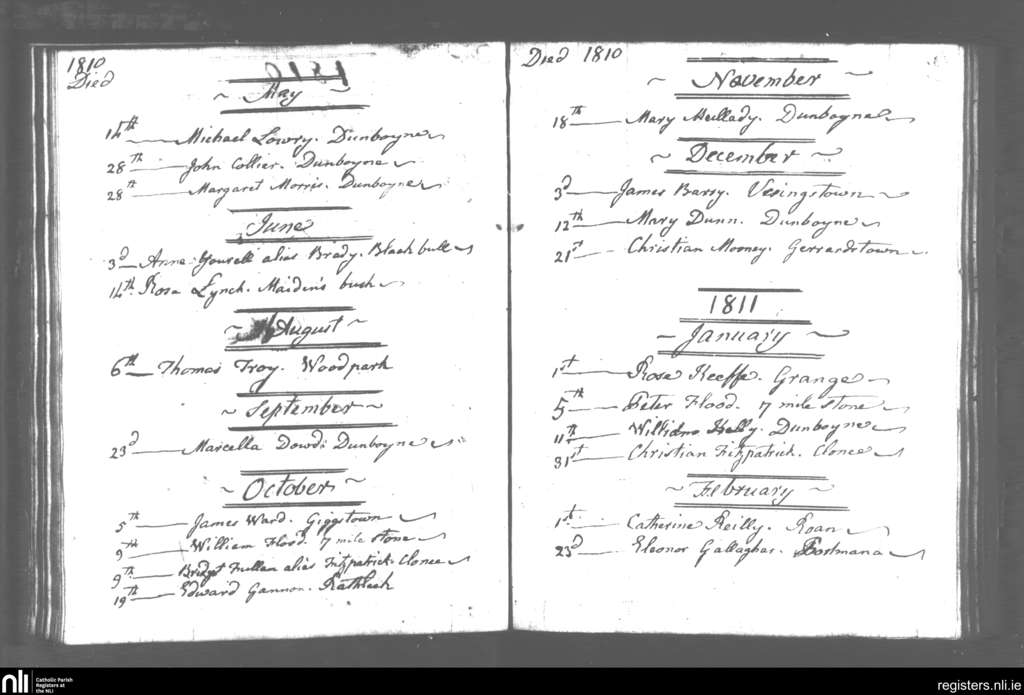 1810
Died
1810
~ May ~
14th Michael Lowry. Dunboyne
28th John Collier. Dunboyne
28th Margaret Morris. Dunboyne
June
3d Anne Yourell alias Brady. Black bull
14th Rose Lynch. Maiden's bush
~ August ~
6th Thomas Troy. Woodpark
~ September ~
23d Marcella Dowd: Dunboyne
~ October ~
5th James Ward. Giggstown
9th William Flood. 7 mile stone
9th Bridget Fullan alias Fitzpatrick. Clonee
19th Edward Gannon. Rathleek
Died 1810
~ November ~
18th Mary Mullady. Dunboyne
~ December ~
3d James Barry. Vesingstown
12th Mary Dunn. Dunboyne
21st Christian Mooney. Gerrardstown
1811
~ January ~
1st Rose Keeffe. Grange
5th Peter Flood. 7 mile stone
11th William Kelly. Dunboyne
31st Christian Fitzpatrick. Clonee
~ February ~
1st Catherine Reilly. Roan
23d Eleonor Gallaghar. Portmana
nli Catholic Parish
Registers at
the NLI
registers.nli.ie